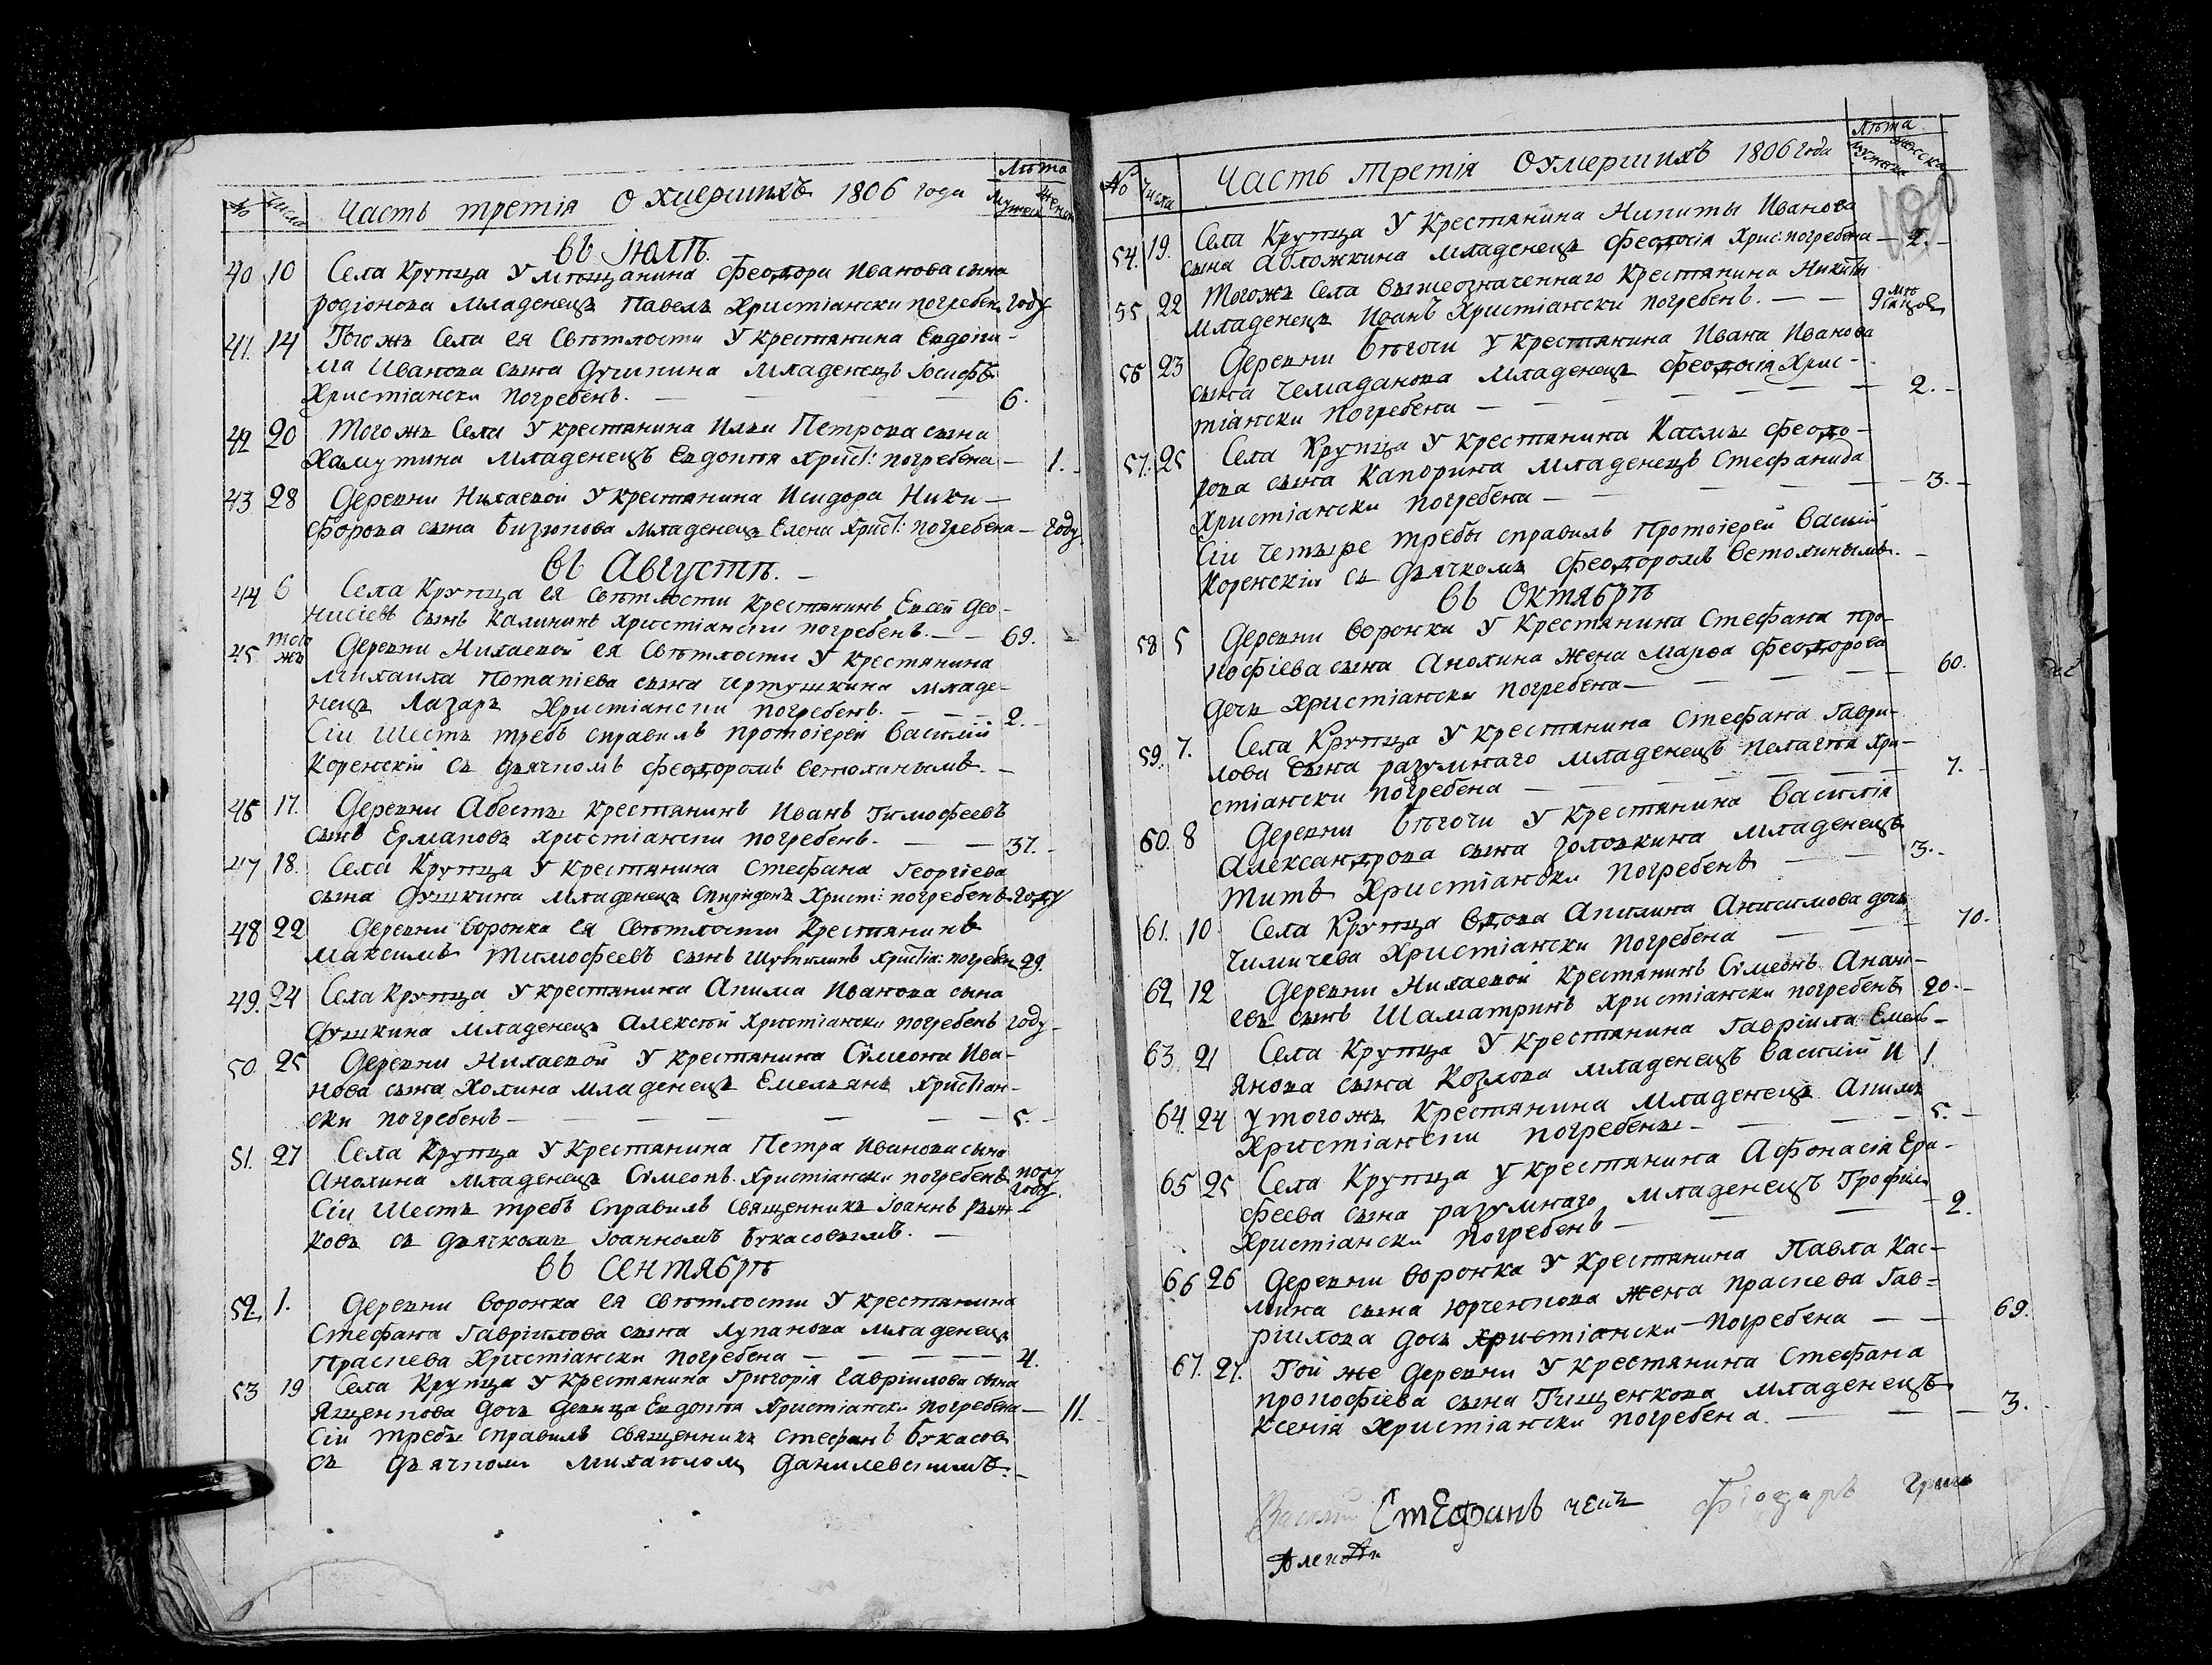 № Числа Часть третія О умершихъ 1806 года Лѣта Мужеска Женска
въ Іюлѣ.
40 10 Села Крупца У мѣщанина Феодора Иванова сына
родіонова младенецъ Павелъ Христіански погребенъ году
41. 14 Тогожъ Села ея Свѣтлости У крестянина Евдоки-
ма Иванова сына Душкина младенецъ Іосифъ
Христіански погребенъ. — — — 6.
42 20 Тогожъ Села У крестянина Ильи Петрова сына
Хамутина младенецъ Евдокія Христ: погребена — 1.
43 28 Деревни Нихаевой У крестянина Исидора Ники-
форова сына Бизюкова младенецъ Елена Христ: погребена — году
въ Августѣ.
44 6 Села Крупца ея свѣтлости Крестянинъ Евсей Део-
нисіевъ сынъ Калининъ христіански погребенъ. — — 69.
45 того жъ Деревни Нихаевой ея Свѣтлости У крестянина
Михаила Потапіева сына Чертушкина младе-
нецъ Лазарь Христіански погребенъ. — — 2.
Сіи Шесть требъ справилъ протоіерей Василій
Коренскій съ дьячкомъ Феодоромъ Ветохинымъ.
46 17. Деревни Абесты крестянинъ Иванъ Тимофеевъ
сынъ Ермаковъ христіански погребенъ. — — 37.
47 18. Села Крупца У Крестянина Стефана Георгіева
сына Душкина младенецъ Спиридонъ Христ: погребенъ году
48 22 Деревни Воронка ея свѣтлости Крестянинъ
Максимъ Тимофеевъ сынъ Христіа: погребен 29.
49. 24 Села Крупца У крестянина Акима Иванова сына
Душкина младенецъ Алексѣй Христіански погребенъ году
50 25 Деревни Нихаевой У крестянина Сѵмеона Ива-
нова сына Холина младенецъ Емельянъ Христіан-
ски погребенъ — — — — 5.
51. 27 Села Крупца У Крестянина Петра Иванова сына
Анохина младенецъ Сѵмеонъ Христіански погребенъ полу году
Сіи Шесть требъ Справилъ Священникъ Іоаннъ Рыж-
ковъ съ дьячкомъ Іоанномъ Букасовымъ.
въ Сентябрѣ
52 1. Деревни Воронка ея свѣтлости У крестянина
Стефана Гавріилова сына Лупанова младенецъ
праскева Христіански погребена — — — 4.
53 19 Села Крупца У крестянина Григорія Гавріилова сына
Ященкова дочь девица Евдокія Христіански погребена — 11.
Сіи требы справилъ священникъ Стефанъ Букасовъ
съ дьячкомъ Михаиломъ Данилевскимъ.
№ Числа Часть Третія О умершихъ 1806 года Лѣта мужеска женска
54. 19. Села Крупца У Крестянина Никиты Иванова
сына Абложкина младенецъ Феодосія Хрис: погребена — 2.
55 22 Тогожъ села вышеозначеннаго Крестянина Никиты
младенецъ Иванъ Христіански погребенъ. — — 9 мѣсяцов
56 23 Деревни Бѣгочи У крестянина Ивана Иванова
сына Чемаданова младенецъ Феодосія Хрис-
тіански погребена — — — — 2.
57. 25 Села Крупца У крестянина Касмы Феодо-
рова сына Капорина младенецъ Стефанида
Христіански погребена — — — — 3.
Сіи четыре требы справилъ Протоіерей Василій
Коренскій съ дьячкомъ Феодоромъ Ветохинымъ.
въ Октябрѣ
58 5 Деревни Воронки У Крестянина Стефана Про-
кофіева сына Анохина жена Марѳа Феодорова
дочь Христіански погребена — — — 60.
59. 7. Села Крупца У крестянина Стефана Гаври-
лова сына разумнаго младенецъ пелагѣя Хри-
стіански погребена — — — — 7.
60. 8 Деревни Бѣгочи У крестянина Василія
Александрова сына Головкина младенецъ
Титъ Христіански погребенъ — — 3.
61. 10 Села Крупца вдова Акилина Анисимова дочь
Чимичева Христіански погребена — — 70.
62 12 Деревни Нихаевой Крестянинъ Сѵмеонъ Анань-
евъ сынъ Шаматринъ Христіански погребенъ 20.
63. 21 Села Крупца У крестянина Гавріила Емель-
янова сына Козлова младенецъ Василій и 1.
64. 24 у тогожъ Крестянина младенецъ Акимъ
Христіански погребены — — — 5.
65 25 Села Крупца У крестянина Афонасія Еро-
феева сына разумнаго младенецъ Трофимъ
Христіански погребенъ — — — 2.
66 26 Деревни Воронка У Крестянина Павла Кас-
мина сына Юрченкова жена Праскева Гав-
ріилова дочь христіански погребена — — 69.
67. 27. Той же Деревни У крестянина Стефана
прокофіева сына Тищенкова младенецъ
Ксенія Христіански погребена. — — 3.
Василій Стефанъ Феодаръ